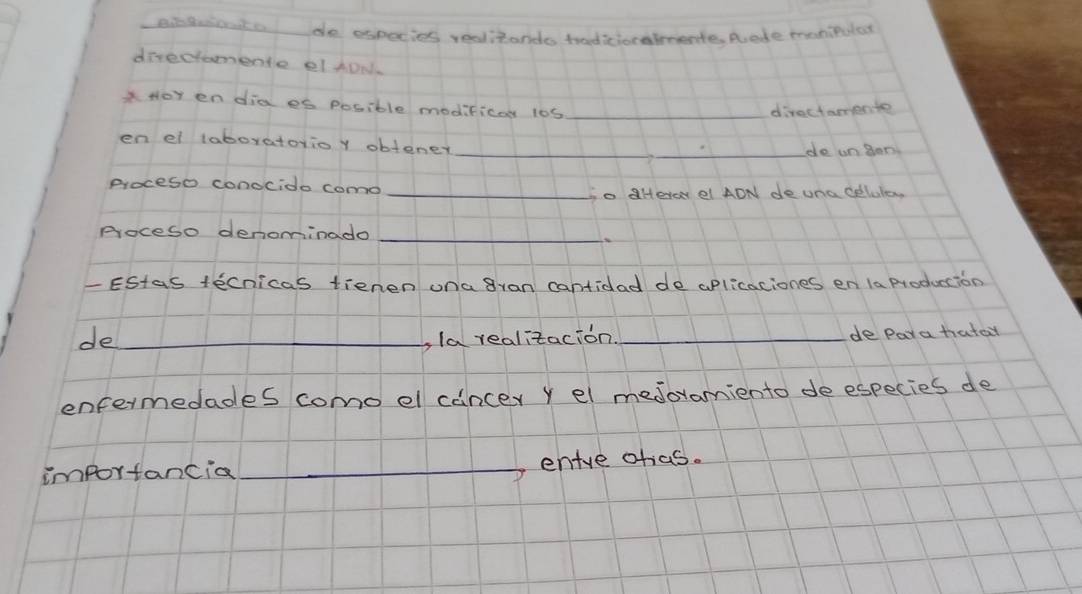 de especies realizando tradicionalmente, puede manipular
directamente el ADN.
* Hoy en dia es posible modificar los ____________ directamente
en el laboratorio y obtener ____________, ____________ de un gen
Proceso conocido como ____________; o alterar el ADN de una célula,
Proceso denominado ____________.
- Estas técnicas tienen una gran cantidad de aplicaciones en la producción
de ____________, la realización. ____________ de para tratar
enfermedades como el cáncer y el mejoramiento de especies de
importancia ____________, entre otras.